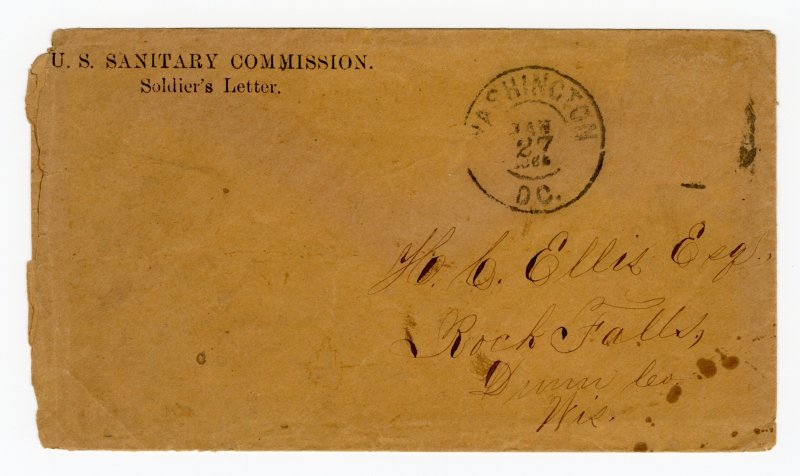 U. S. SANITARY COMMISSION.
Soldier's Letter.
WASHINGTON
JAN
27
D.C.
H. C. Ellis Esq.,
Rock Falls,
Dunn Co
Wis.